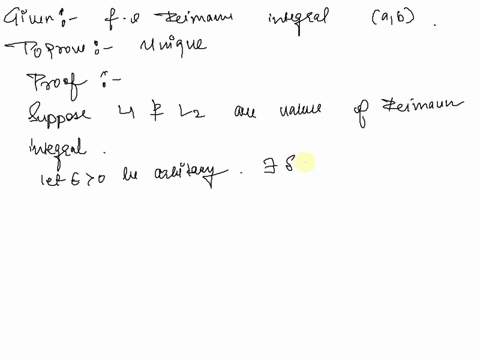 Given :- f.e Reimann integral (a,b) .
To prove :- Unique
Proof :-
Suppose L1 & L2 are value of Reimann
integral .
let ε > 0 be arbitary . ∃ δ